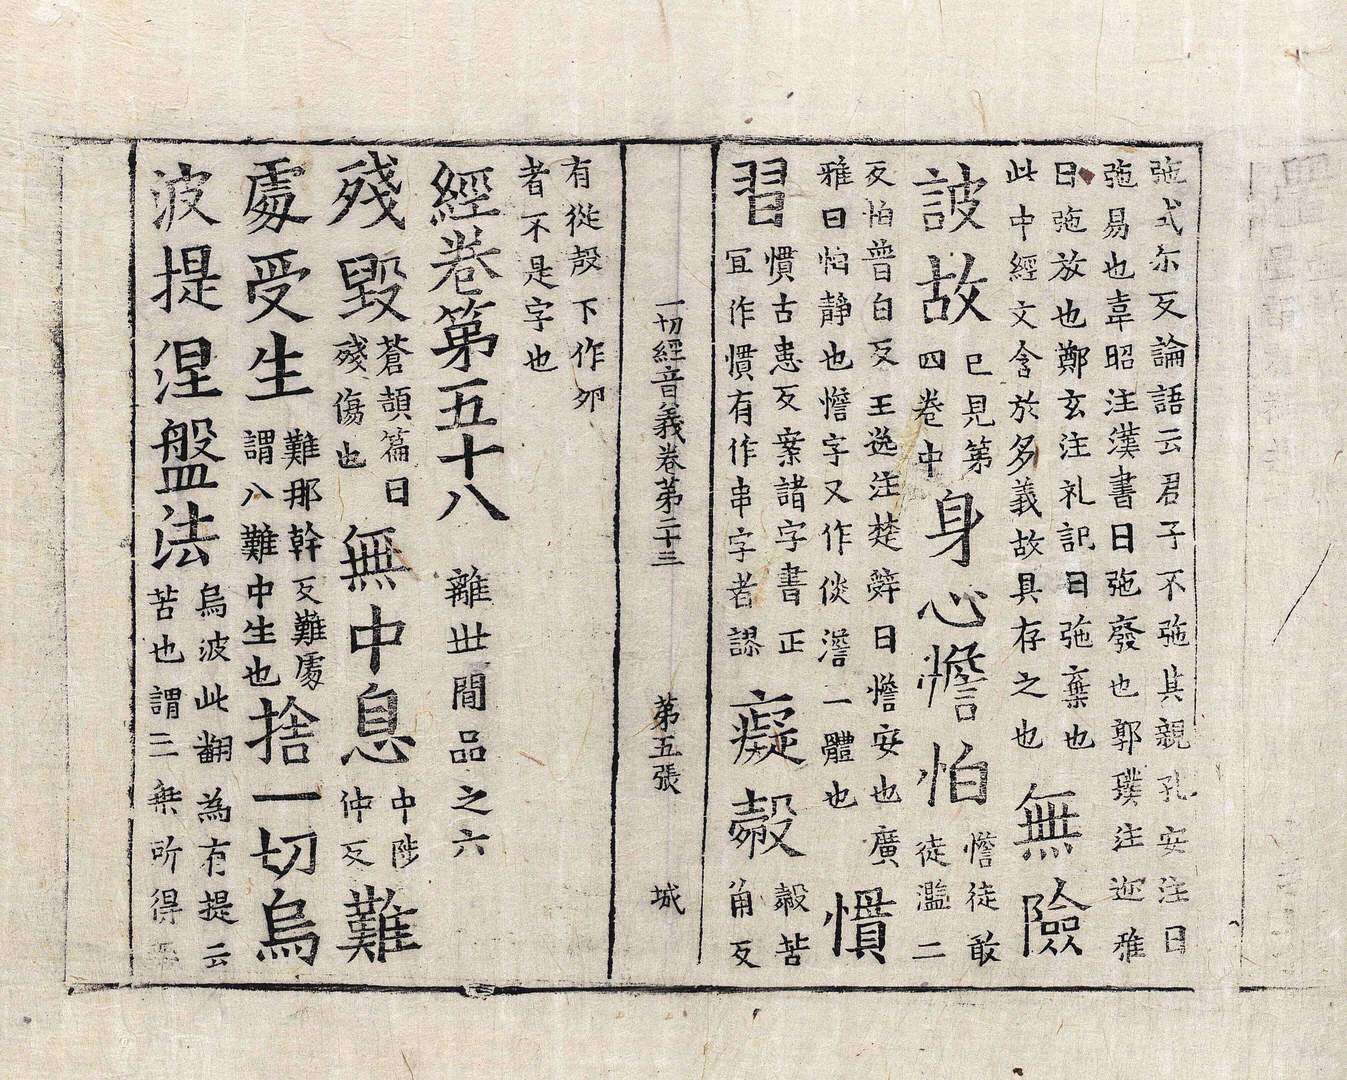 弛式尔反論語云君子不弛其親孔安注曰
弛易也韋昭注漢書曰弛廢也郭璞注迩雅
曰弛放也鄭玄注礼記曰弛棄也
此中經文含於多義故具存之也
無險
詖故
已見第
四卷中
身心憺怕
憺徒敢
徒濫二
反怕普白反王逸注楚辝曰憺安也廣
雅曰怕静也憺字又作倓澹一體也
慣
習
慣古患反案諸字書正
冝作慣有作串字者謬
癡㲉
㲉苦
角反
一切經音義卷第二十三 第五張 城
有從殼下作卵
者不是字也
經卷第五十八
離世間品之六
殘毀
蒼頡篇曰
殘傷也
無中息
中陟
仲反
難
處受生
難那幹反難處
謂八難中生也
捨一切烏
波提涅盤法
烏波此翻為有提云
苦也謂三乗所得